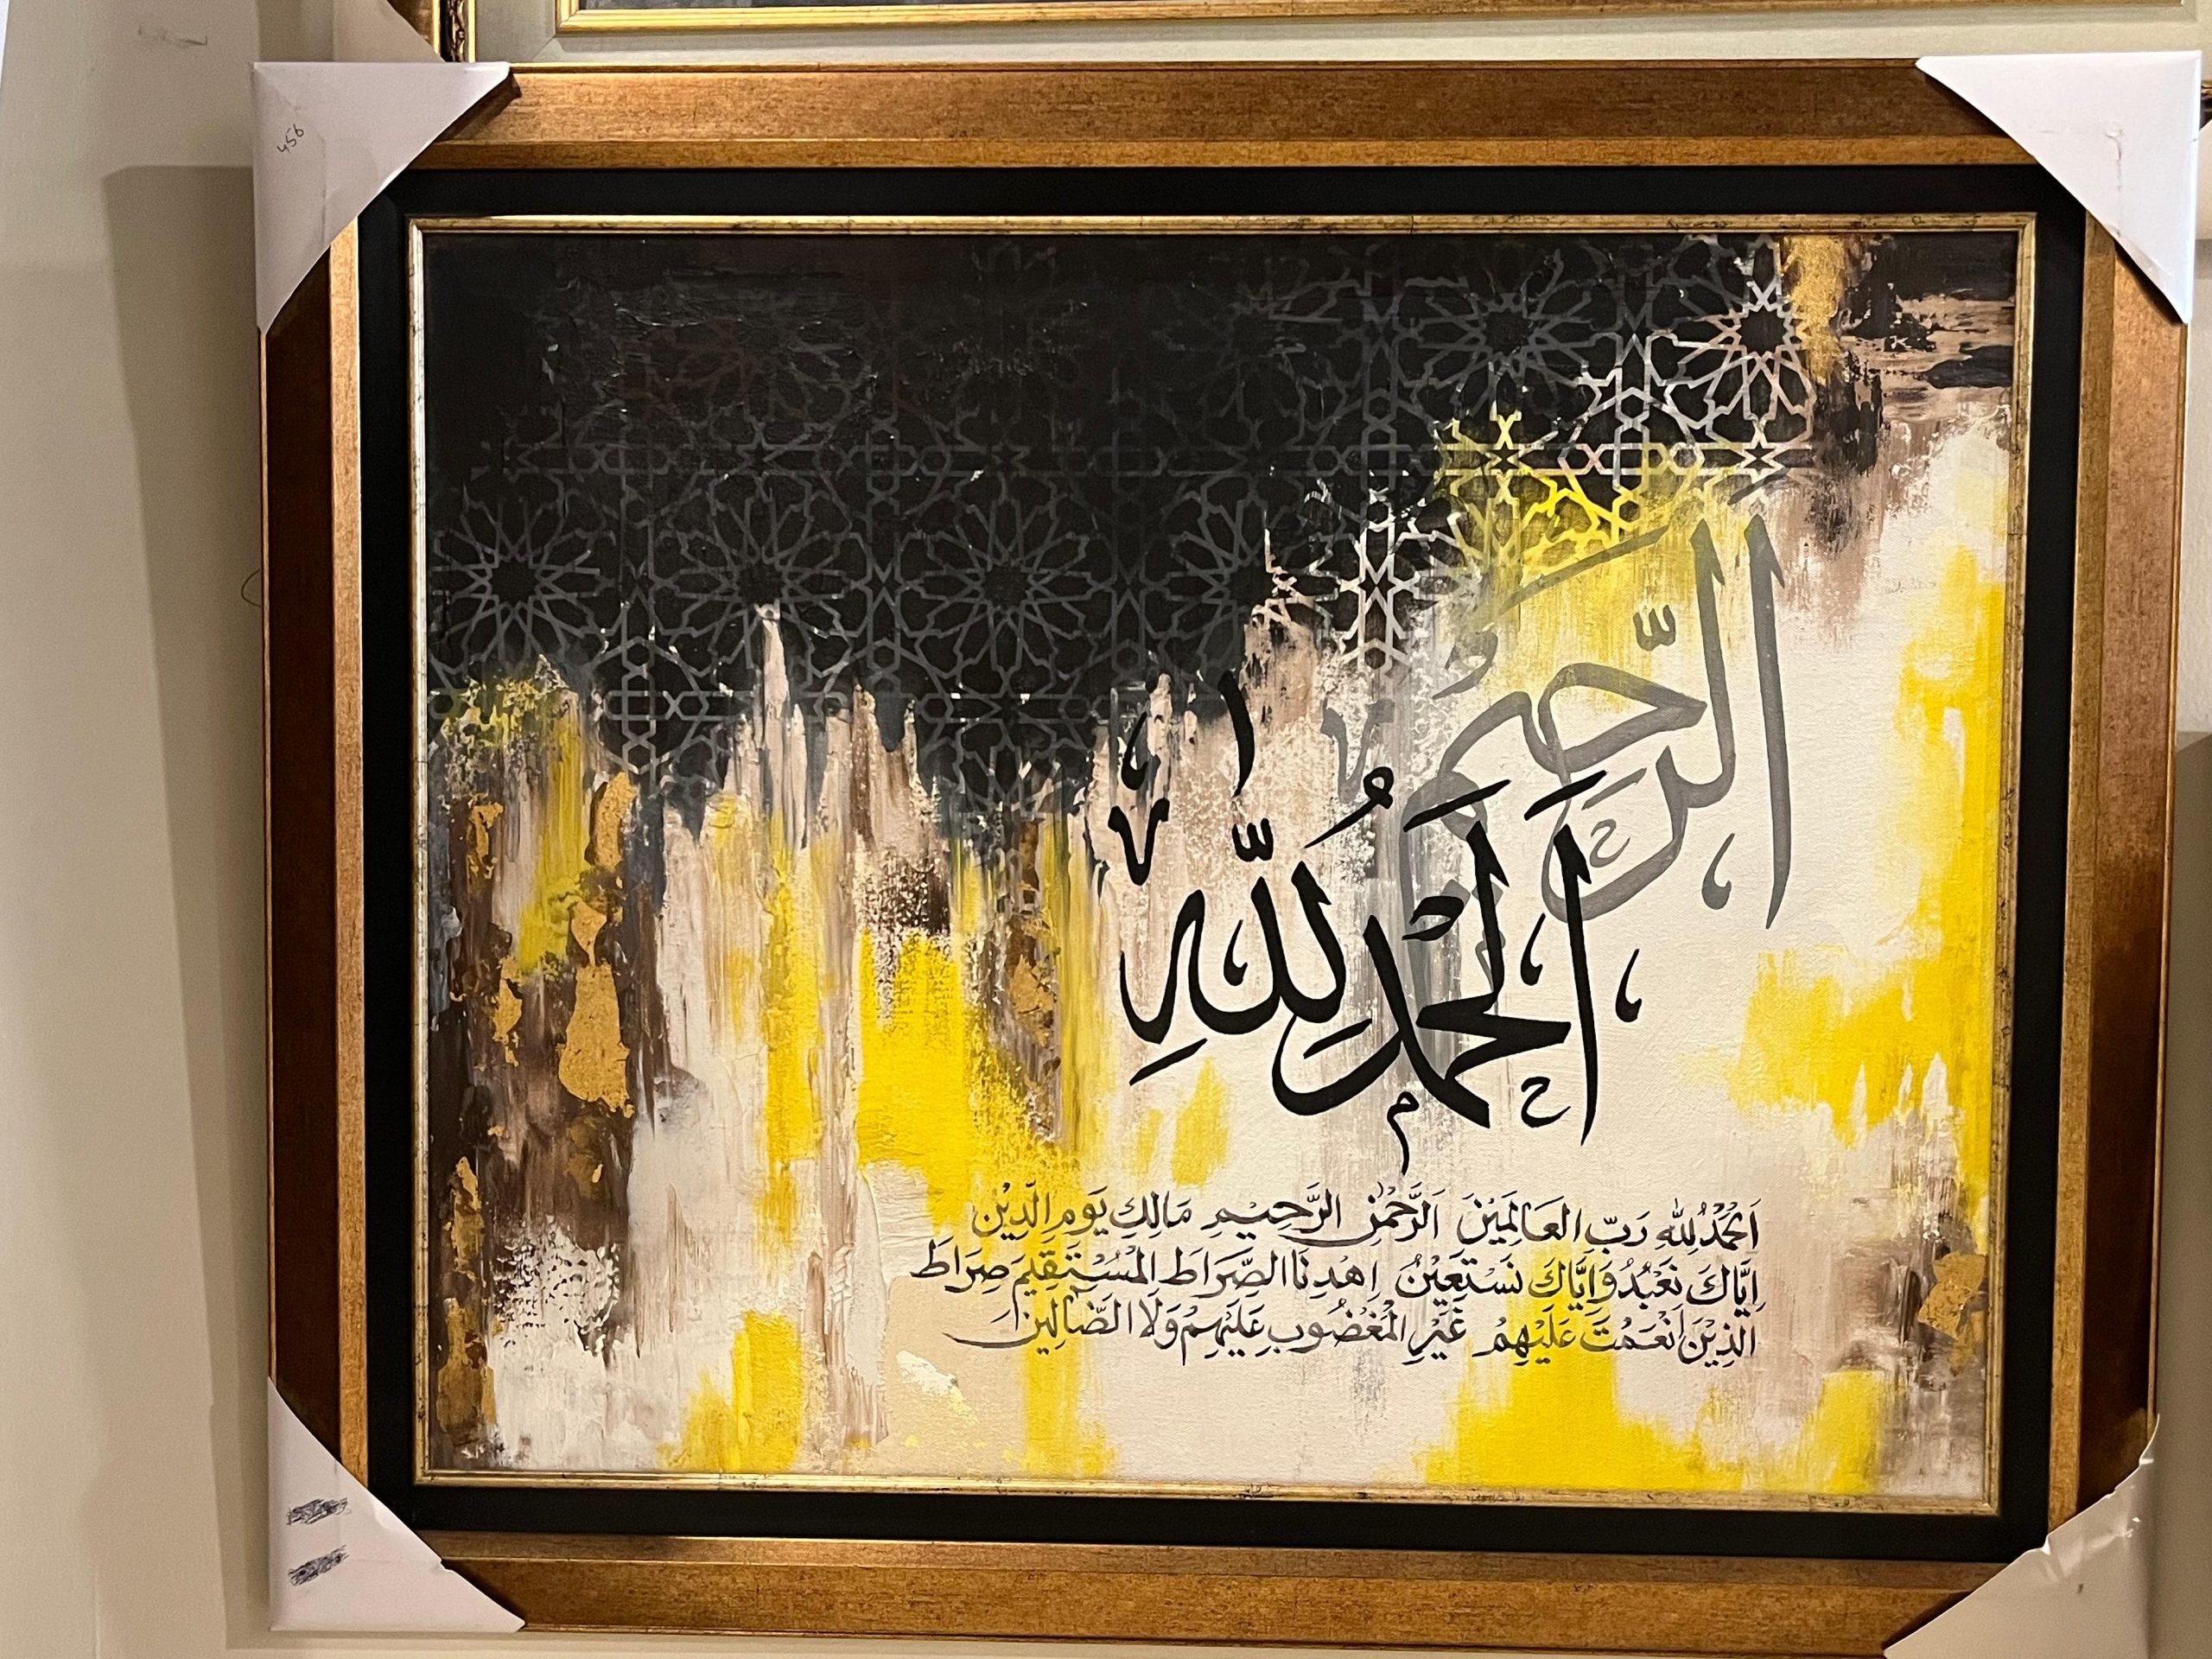 456
الرَّحِيمُ
الْحَمْدُ لِلّٰهِ
اَلْحَمْدُ لِلّٰهِ رَبِّ العَالَمِيْنَ اَلرَّحْمٰنِ الرَّحِيْمِ مَالِكِ يَوْمِ الدِّيْنِ
اِيَّاكَ نَعْبُدُ وَاِيَّاكَ نَسْتَعِيْنُ اِهْدِنَا الصِّرَاطَ الْمُسْتَقِيْمَ صِرَاطَ
الَّذِيْنَ اَنْعَمْتَ عَلَيْهِمْ غَيْرِ الْمَغْضُوبِ عَلَيْهِمْ وَلَا الضَّالِّيْنَ